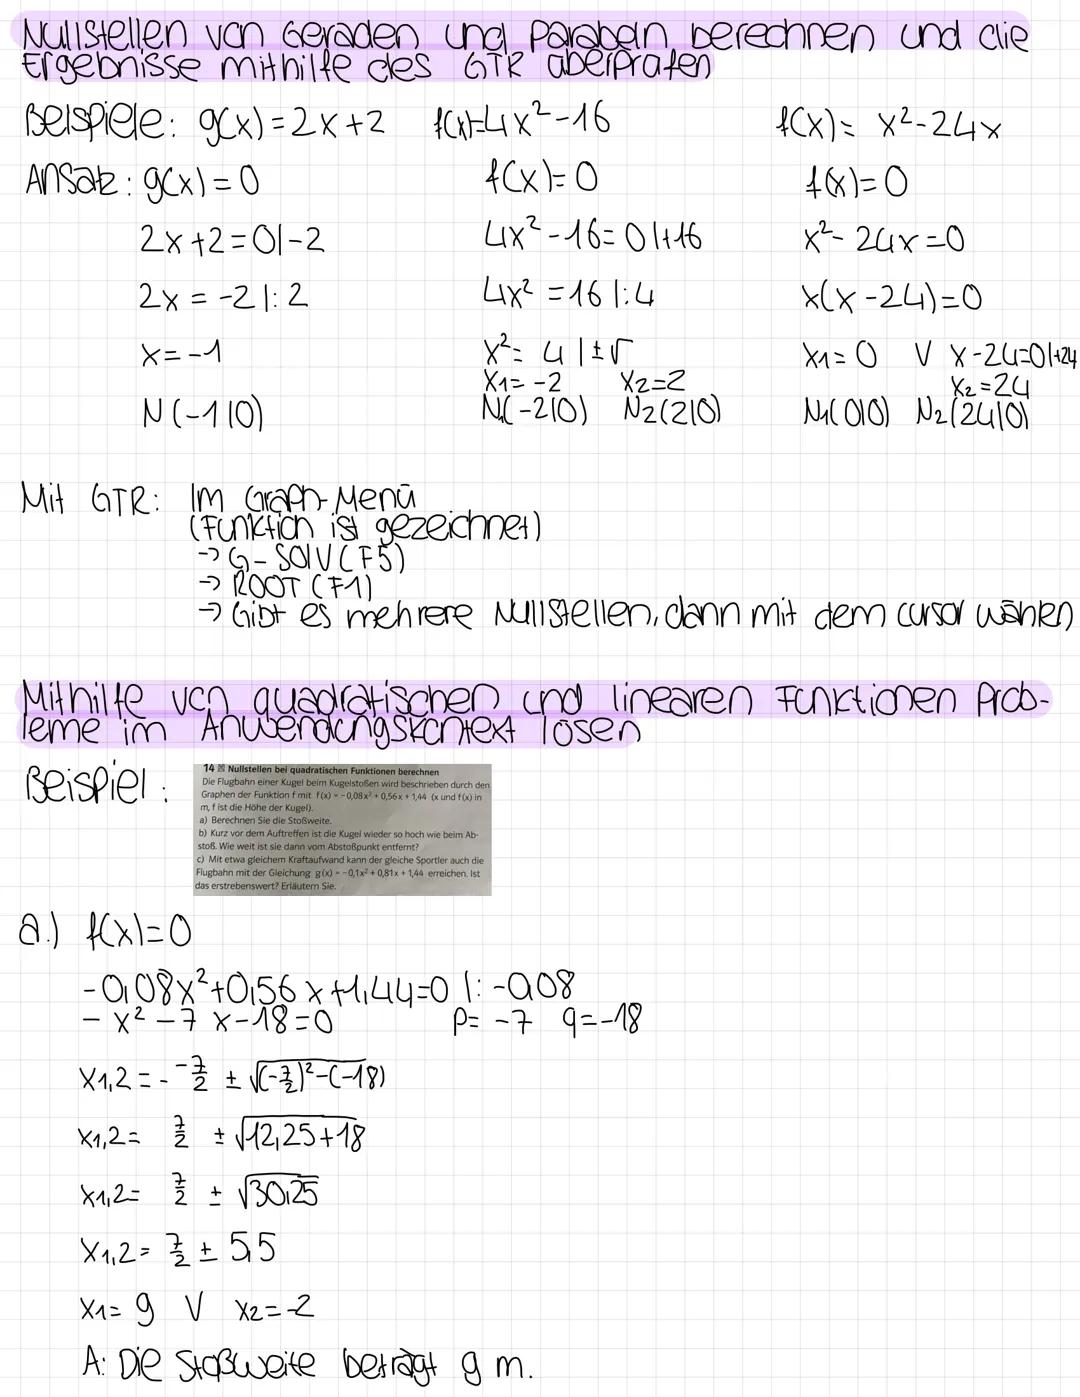 Nullstellen von Geraden und Parabeln berechnen und die
Ergebnisse mithilfe des GTR überprüfen
Beispiele: g(x)=2x+2 f(x)=4x²-16 f(x)= x²-24x
Ansatz: g(x)=0 f(x)=0 f(x)=0
2x+2=0|-2 4x²-16=0|+16 x²-24x=0
2x = -2|:2 4x² =16 |:4 x(x-24)=0
x=-1 x²= 4 |±√ x1=0 V x-24=0|+24
x1=-2 x2=2 x2=24
N(-1|0) N1(-2|0) N2(2|0) N1(0|0) N2(24|0)
Mit GTR: Im Graph-Menü
(Funktion ist gezeichnet)
→ G-SOLV(F5)
→ ROOT (F1)
→ Gibt es mehrere Nullstellen, dann mit dem Cursor wählen
Mithilfe von quadratischen und linearen Funktionen Prob-
leme im Anwendungskontext lösen
Beispiel:
14 Nullstellen bei quadratischen Funktionen berechnen
Die Flugbahn einer Kugel beim Kugelstoßen wird beschrieben durch den
Graphen der Funktion f mit f(x) = -0,08x² + 0,56x + 1,44 (x und f(x) in
m, f ist die Höhe der Kugel).
a) Berechnen Sie die Stoßweite.
b) Kurz vor dem Auftreffen ist die Kugel wieder so hoch wie beim Ab-
stoß. Wie weit ist sie dann vom Abstoßpunkt entfernt?
c) Mit etwa gleichem Kraftaufwand kann der gleiche Sportler auch die
Flugbahn mit der Gleichung g(x) = -0,1x² + 0,81x + 1,44 erreichen. Ist
das erstrebenswert? Erläutern Sie.
a.) f(x)=0
-0,08x²+0,56x+1,44=0 |: -0,08
- x² -7 x-18=0 p= -7 q=-18
x1,2 = - -7/2 ± √(-7/2)²-(-18)
x1,2= 7/2 ± √12,25+18
x1,2= 7/2 ± √30,25
x1,2= 7/2 ± 5,5
x1= 9 V x2=-2
A: Die Stoßweite beträgt 9 m.